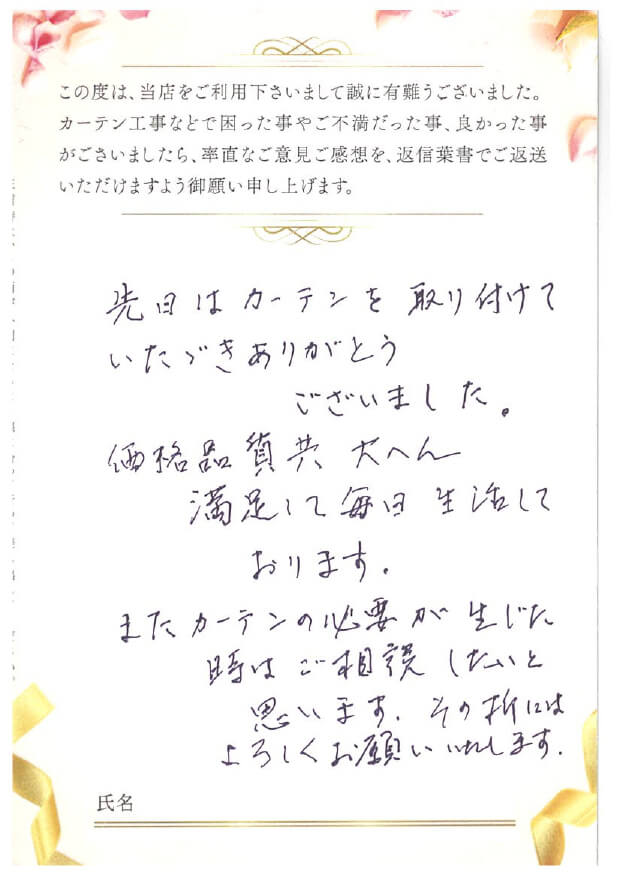 この度は、当店をご利用下さいまして誠に有難うございました。
カーテン工事などで困った事やご不満だった事、良かった事
がございましたら、率直なご意見ご感想を、返信葉書でご返送
いただけますよう御願い申し上げます。
先日はカーテンを取り付けて
いただきありがとう
ございました。
価格品質共大へん
満足して毎日生活して
おります。
またカーテンの必要が生じた
時はご相談したいと
思います。その折には
よろしくお願いいたします。
氏名